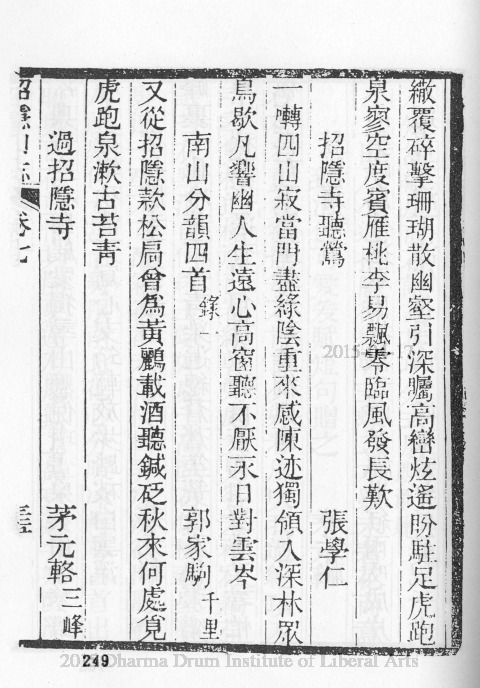 繖覆碎擊珊瑚散幽壑引深矚高巒炫遙盼駐足虎跑
泉寥空度賓雁桃李易飄零臨風發長歎
招隱寺聽鶯 張學仁
一囀四山寂當門盡綠陰重來感陳迹獨領入深林眾
鳥歇凡響幽人生遠心高窗聽不厭永日對雲岑
南山分韻四首 錄一 郭家駒 千里
又從招隱款松扃曾為黃鸝載酒聽鍼砭秋來何處覓
虎跑泉漱古苔青
過招隱寺 茅元輅 三峰
招隱山志 卷七 三五
249
2015
Dharma Drum Institute of Liberal Arts